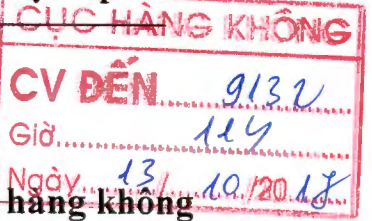 CỤC HÀNG KHÔNG
CV ĐẾN 9132
Giờ 11
Ngày 13/10/2017
hàng không